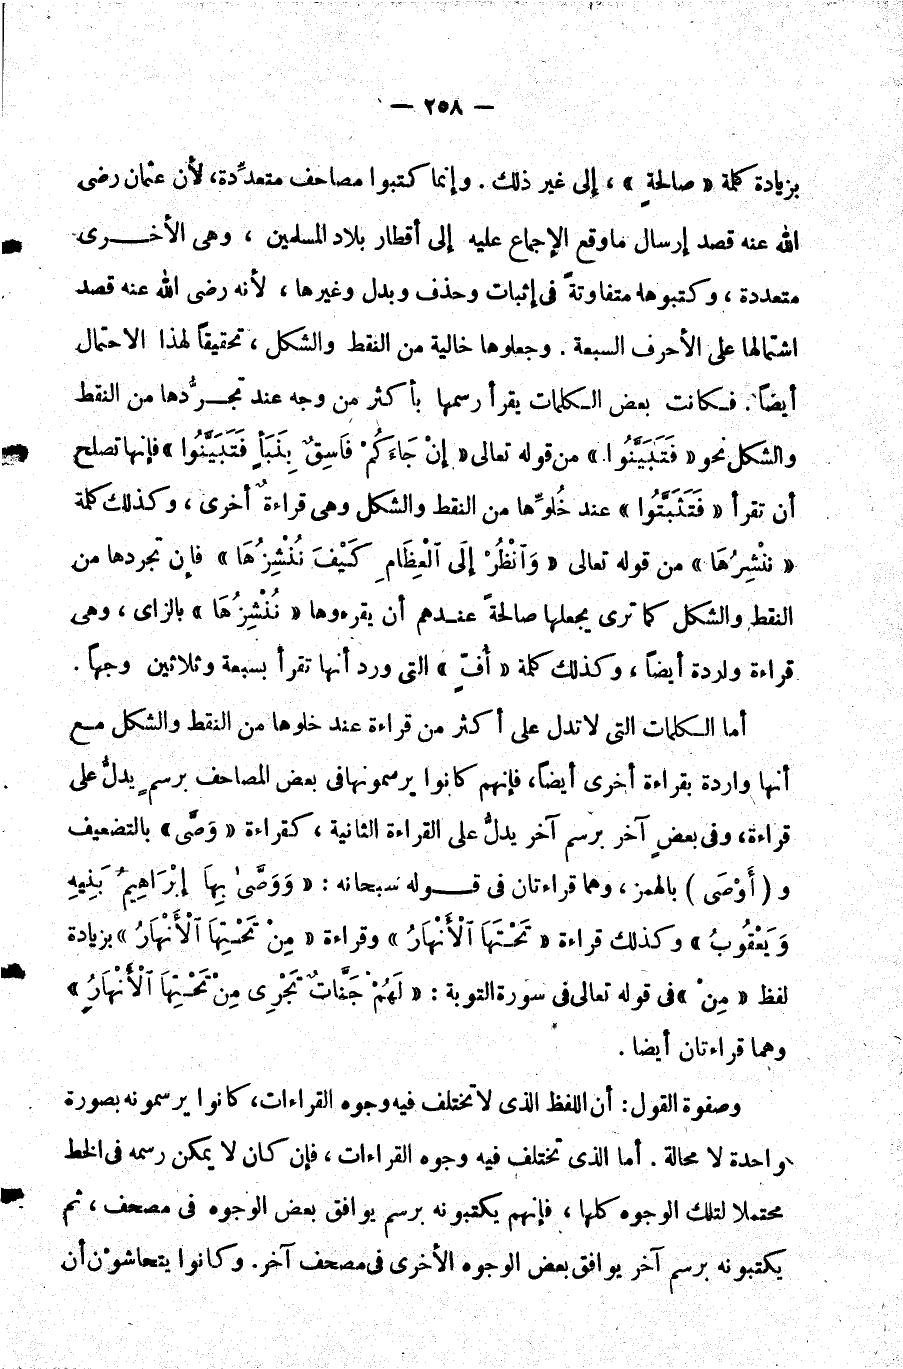 — ٢٥٨ —
بزيادة كلمة « صالحةٍ » ، إلى غير ذلك . وإنما كتبوا مصاحف متعدِّدة، لأن عثمان رضى
الله عنه قصد إرسال ماوقع الإجماع عليه إلى أقطار بلاد المسلمين ، وهى الأخـــرى
متعددة ، وكتبوها متفاوتةً فى إثبات وحذف وبدل وغيرها ، لأنه رضى الله عنه قصد
اشتمالها على الأحرف السبعة . وجعلوها خالية من النقط والشكل ، تحقيقاً لهذا الاحتمال
أيضاً . فـكانت بعض الـكلمات يقرأ رسمها بأكثر من وجه عند تجـرُّدها من النقط
والشكل نحو « فَتَبَيَّنُوا » من قوله تعالى « إِنْ جَاءَكُمْ فَاسِقٌ بِنَبَأٍ فَتَبَيَّنُوا » فإنها تصلح
أن تقرأ « فَتَثَبَّتُوا » عند خُلُوِّها من النقط والشكل وهى قراءةٌ أخرى ، وكذلك كلمة
« ننْشِرُهَا » من قوله تعالى « وَٱنْظُرْ إِلَى ٱلْعِظَامِ كَيْفَ نُنْشِزُهَا » فإن تجردها من
النقط والشكل كما ترى يجعلها صالحةً عنـدهم أن يقرءوها « نُنْشِزُهَا » بالزاى ، وهى
قراءة واردة أيضاً ، وكذلك كلمة « أُفّ » التى ورد أنها تقرأ بسبعة وثلاثين وجهاً .
أما الـكلمات التى لاتدل على أكثر من قراءة عند خلوها من النقط والشكل مـع
أنها واردة بقراءة أخرى أيضاً، فإنهم كانوا يرسمونها فى بعض المصاحف برسمٍ يدلُّ على
قراءة، وفى بعضٍ آخر برسم آخر يدلُّ على القراءة الثانية ، كقراءة « وَصَّى » بالتضعيف
و ( أَوْصَى ) بالهمز ، وهما قراءتان فى قـــوله سبحانه : « وَوَصَّىٰ بِهَا إِبْرَاهِيمُ بَنِيهِ
وَيَعْقُوبُ » وكذلك قراءة « تَحْتَهَا ٱلْأَنْهَارُ » وقراءة « مِنْ تَحْتِهَا ٱلْأَنْهَارُ » بزيادة
لفظ « مِنْ » فى قوله تعالى فى سورة التوبة : « لَهُمْ جَنَّاتٌ تَجْرِى مِنْ تَحْتِهَا ٱلْأَنْهَارُ »
وهما قراءتان أيضا .
وصفوة القول : أن اللفظ الذى لاتختلف فيه وجوه القراءات، كانوا يرسمونه بصورة
واحدة لا محالة . أما الذى تختلف فيه وجوه القراءات ، فإن كان لا يمكن رسمه فى الخط
محتملا لتلك الوجوه كلها ، فإنهم يكتبونه برسم يوافق بعض الوجوه فى مصحف ، ثم
يكتبونه برسم آخر يوافق بعض الوجوه الأخرى فى مصحف آخر. وكانوا يتحاشون أن